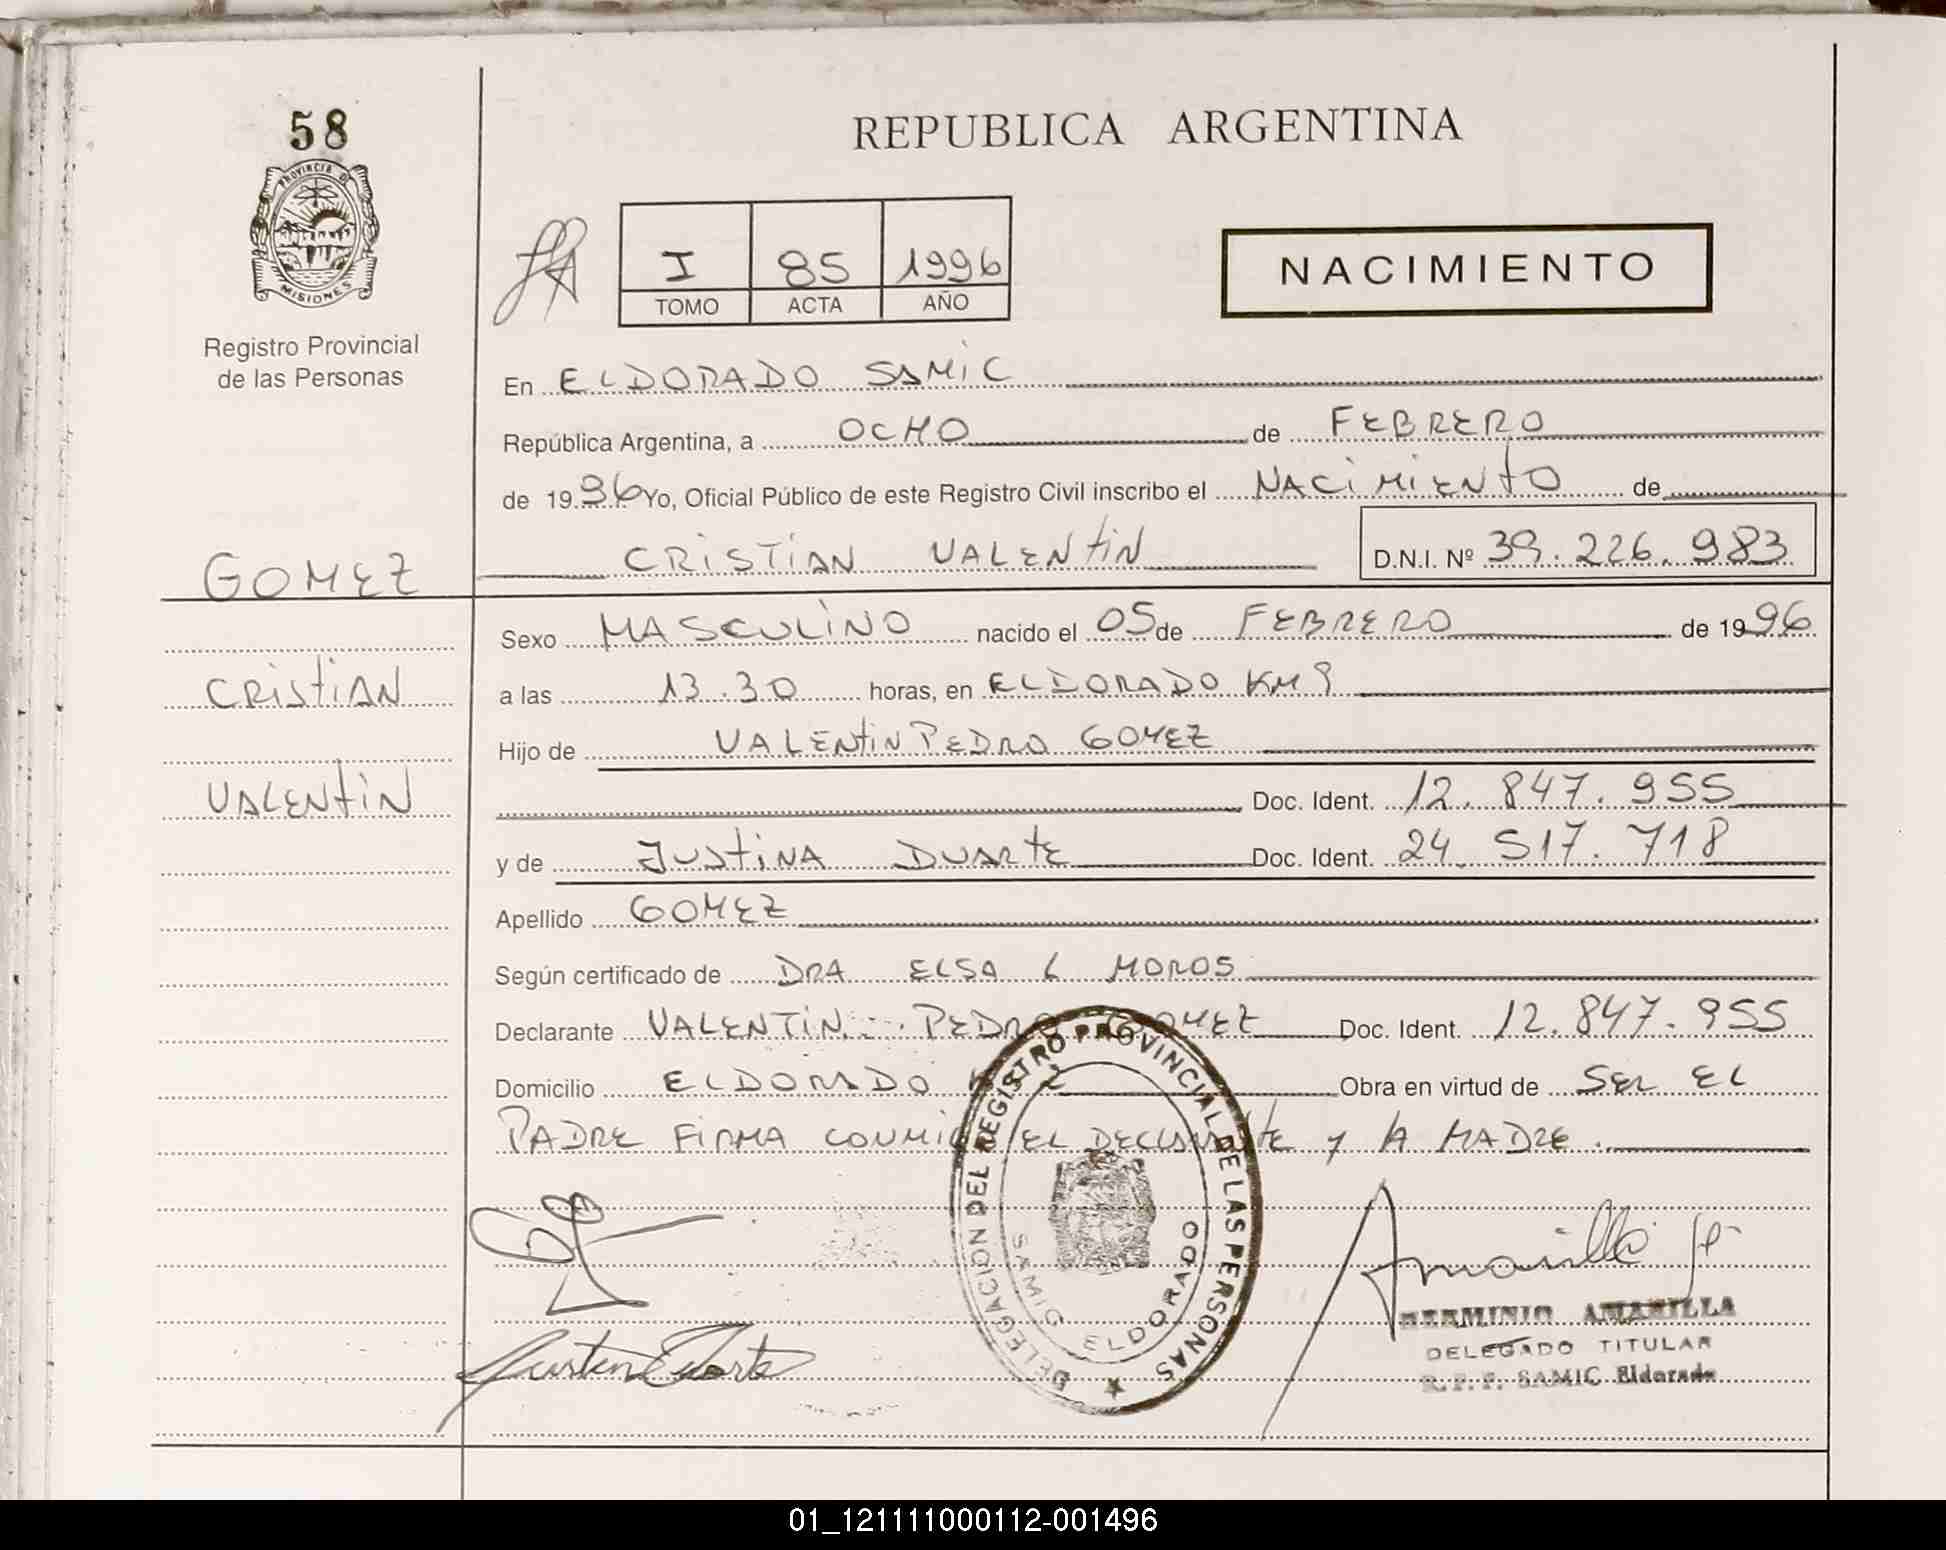 58
PROVINCIA DE
MISIONES
Registro Provincial
de las Personas
GOMEZ
CRISTIAN
VALENTIN
REPUBLICA ARGENTINA
I 85 1996
TOMO ACTA AÑO
NACIMIENTO
En ELDORADO SAMIC
República Argentina, a OCHO de FEBRERO
de 1996 Yo, Oficial Público de este Registro Civil inscribo el NACIMIENTO de
CRISTIAN VALENTIN D.N.I. Nº 39.226.983
Sexo MASCULINO nacido el 05 de FEBRERO de 1996
a las 13.30 horas, en ELDORADO KM 9
Hijo de VALENTIN PEDRO GOMEZ
Doc. Ident. 12.847.955
y de JUSTINA DUARTE Doc. Ident. 24.517.718
Apellido GOMEZ
Según certificado de DRA ELSA L MOROS
Declarante VALENTIN PEDRO GOMEZ Doc. Ident. 12.847.955
Domicilio ELDORADO Obra en virtud de SER EL
PADRE FIRMA CONMIGO EL DECLARANTE Y LA MADRE.
DELEGACION DEL REGISTRO PROVINCIAL DE LAS PERSONAS
SAMIC ELDORADO
Justina Duarte
Amarilla H
HERMINIO AMARILLA
DELEGADO TITULAR
R.P.P. SAMIC Eldorado
01_121111000112-001496